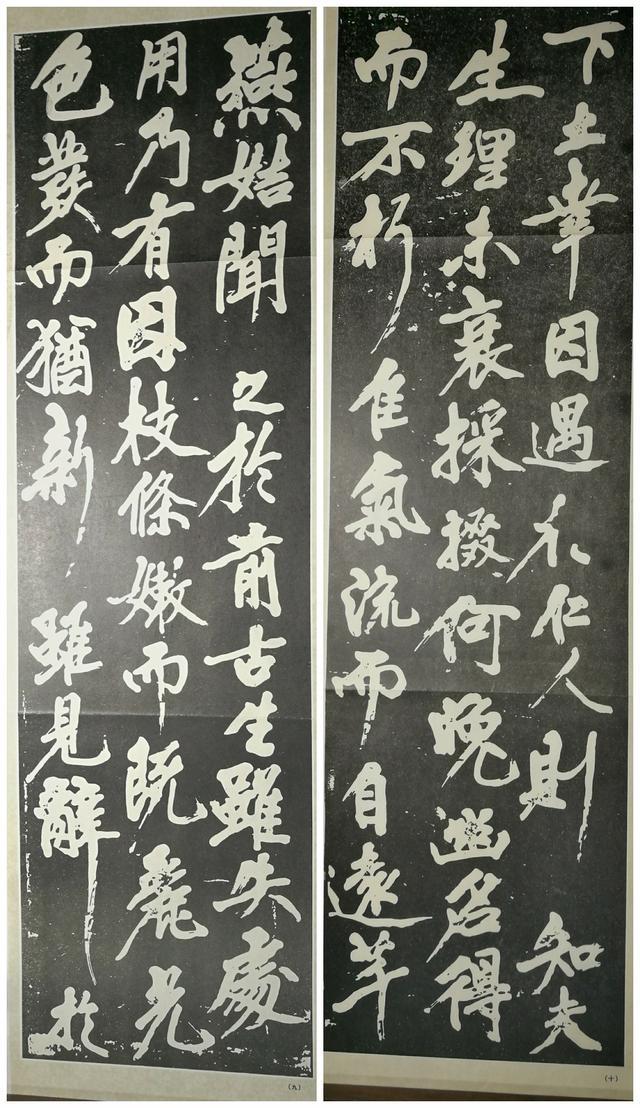 燕始聞之於前古生雖失處
用乃有因枝條嫩而既麗光
色發而猶新雖見辭於
(九)
下土幸因遇仁人則知夫
生理未衰採掇何晚名得
而不朽佳氣流而自遠
(十)